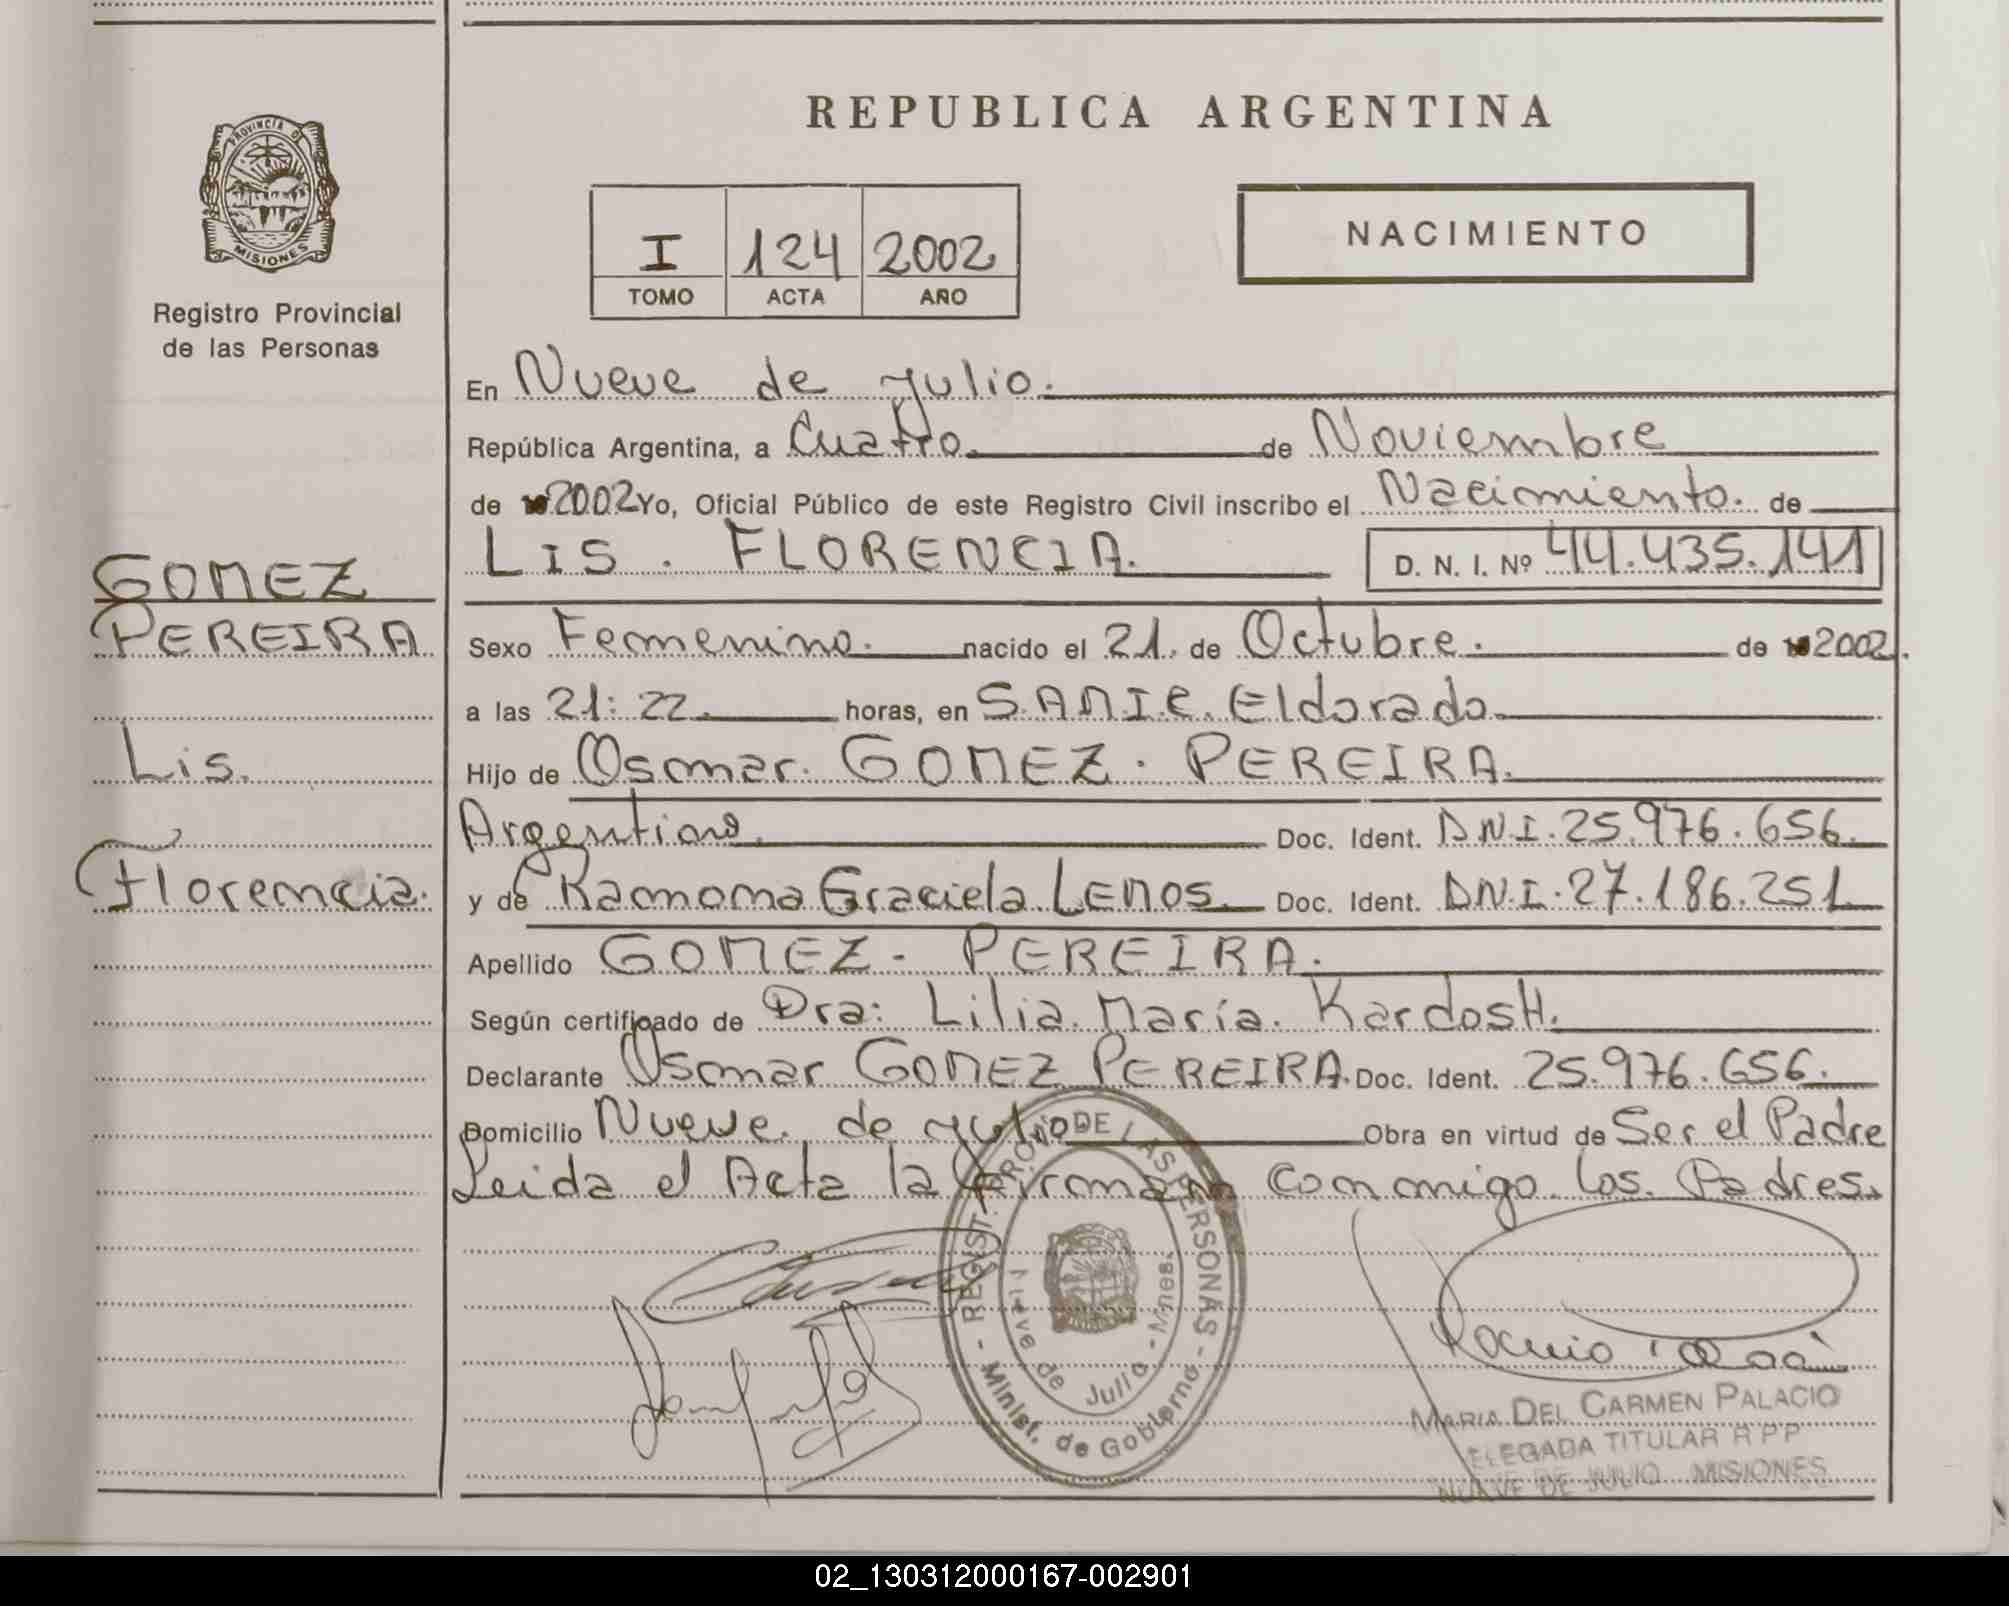 REPUBLICA ARGENTINA
PROVINCIA DE
MISIONES
Registro Provincial
de las Personas
I 124 2002
TOMO ACTA AÑO
NACIMIENTO
En Nueve de Julio.
República Argentina, a Cuatro. de Noviembre
de 2002 Yo, Oficial Público de este Registro Civil inscribo el Nacimiento. de
LIS. FLORENCIA. D. N. I. Nº 44.435.141
GOMEZ
PEREIRA
Lis.
Florencia.
Sexo Femenino. nacido el 21. de Octubre. de 2002.
a las 21:22. horas, en S.A.M.I.C. Eldorado.
Hijo de Osmar. GOMEZ. PEREIRA.
Argentino. Doc. Ident. D.N.I. 25.976.656.
y de Ramona Graciela LEMOS. Doc. Ident. D.N.I. 27.186.251
Apellido GOMEZ. PEREIRA.
Según certificado de Dra: Lilia. María. Kardost.
Declarante Osmar GOMEZ PEREIRA. Doc. Ident. 25.976.656.
Domicilio Nueve. de Julio Obra en virtud de Ser el Padre
Leida el Acta la firman conmigo. los. Padres.
- REGIST. PROV. DE LAS PERSONAS -
Minist. de Gobierno
Nueve de Julio - Mnes.
MARIA DEL CARMEN PALACIO
DELEGADA TITULAR R P P
NUEVE DE JULIO MISIONES
02_130312000167-002901